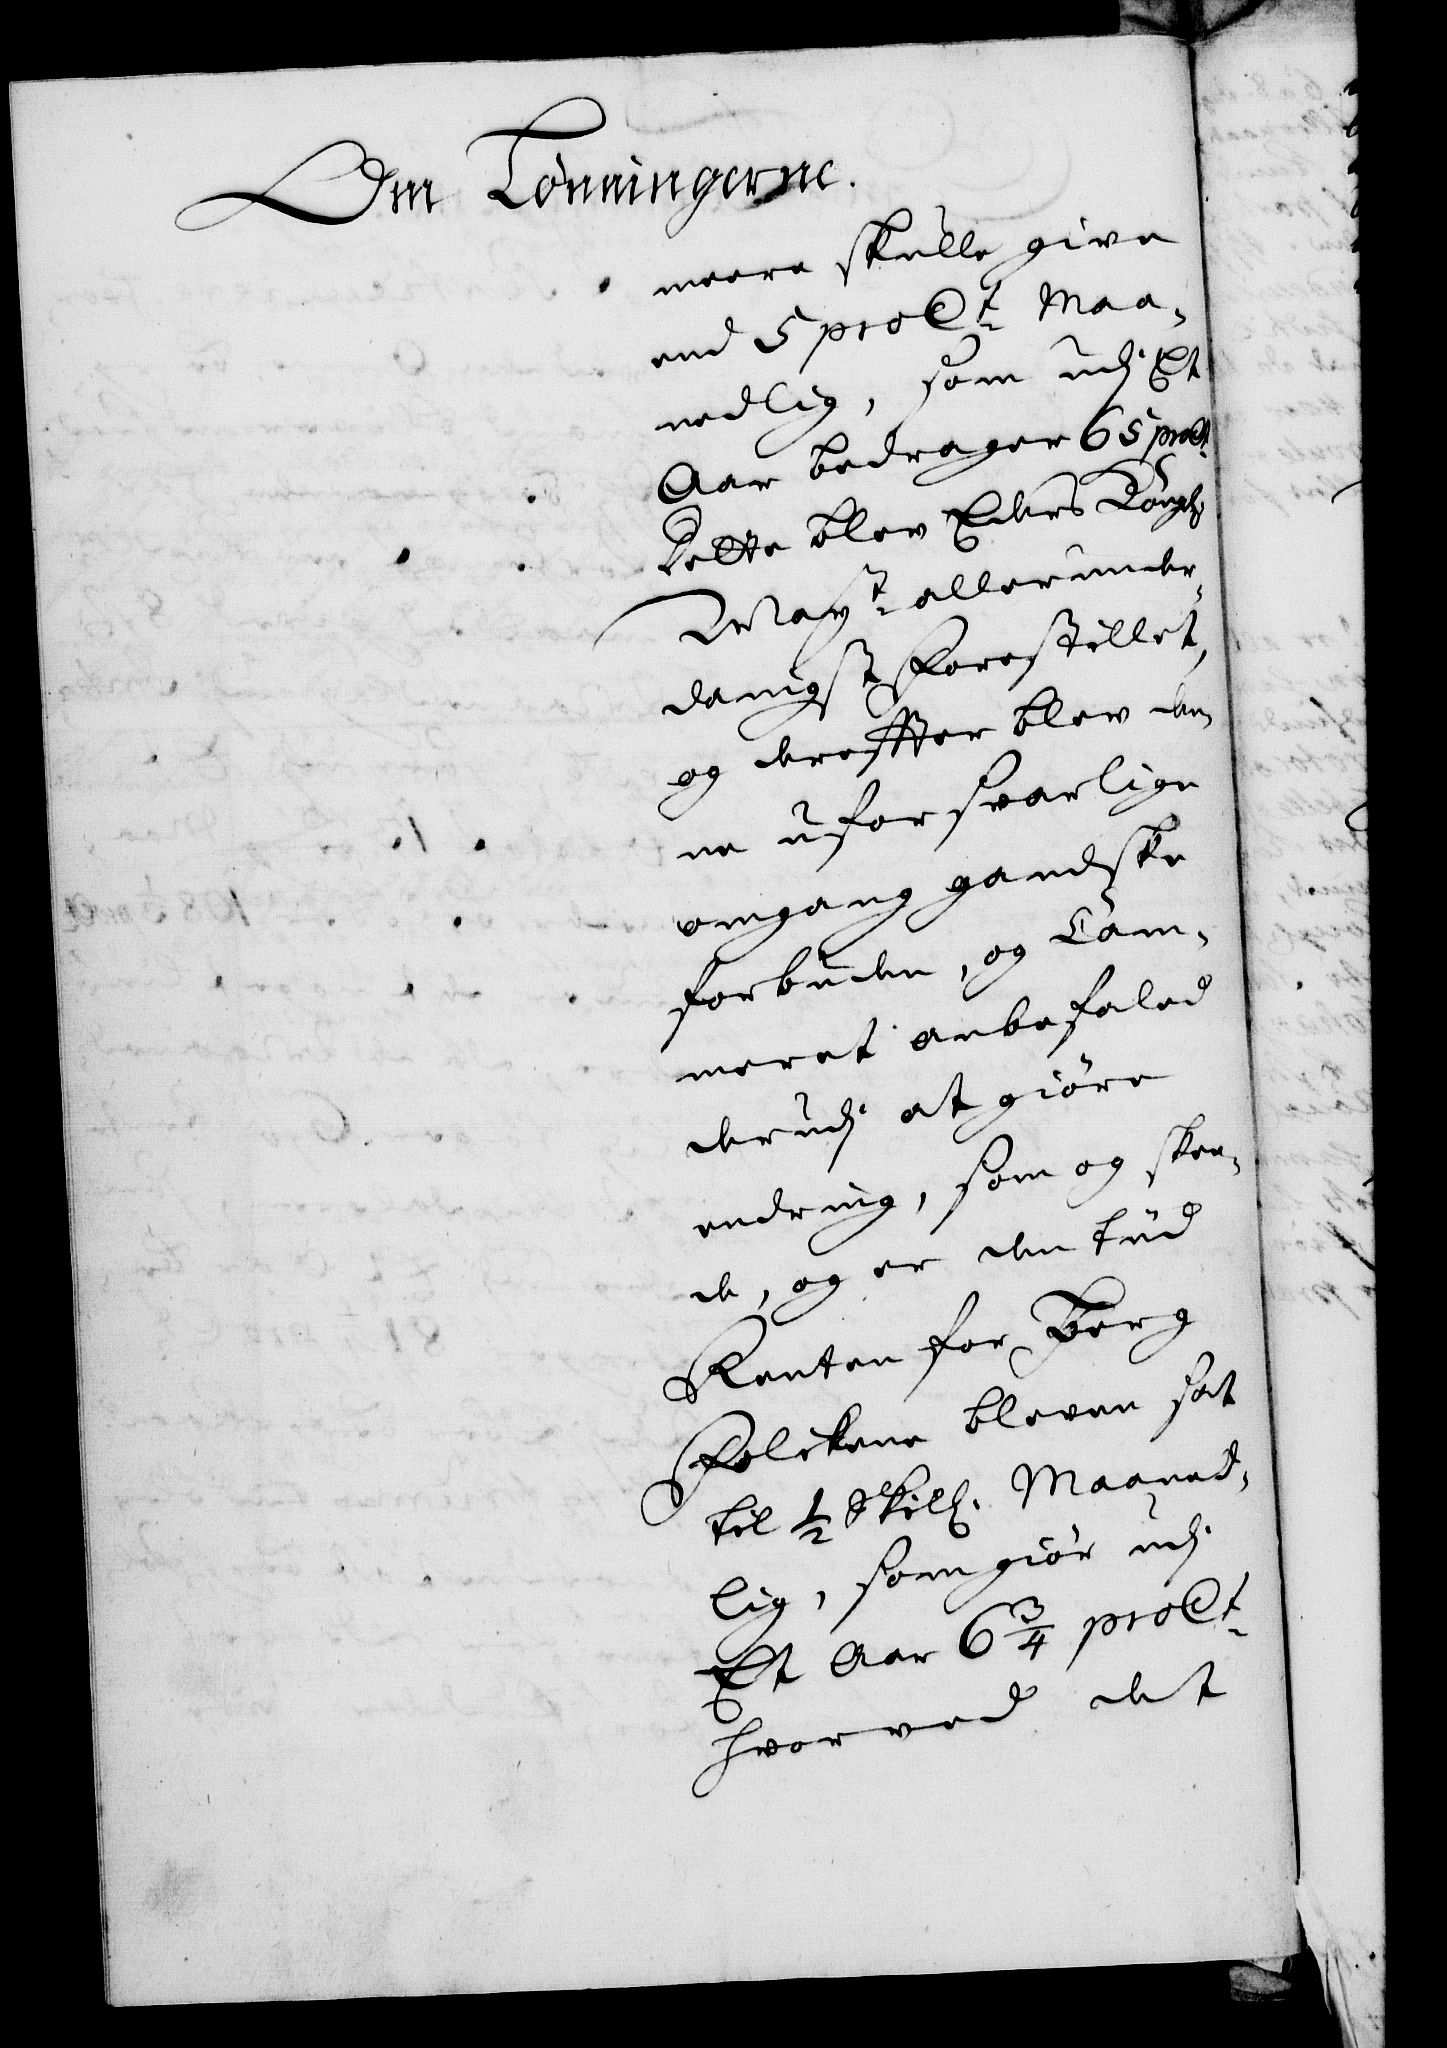 Om Lönningerne.
meere skulle give
end 5 pro Ct Maa-
nedlig, som udj Et
Aar bedrager 65 pro Ct.
Dette blev Eders Kongl:
Mayt allerunder-
danigst Forestillet,
og derefter blev den-
ne uforsvarlige
omgang gandske
forbuden, og Cam-
meret anbefaled
derudj at giöre
endring, som og skee-
de, og er den tüd
Renten for Berg
Folckene bleven sat
til ½ Skill: Maaned-
lig, som giör udj
Et Aar 6¾ pro Ct
hvorved det